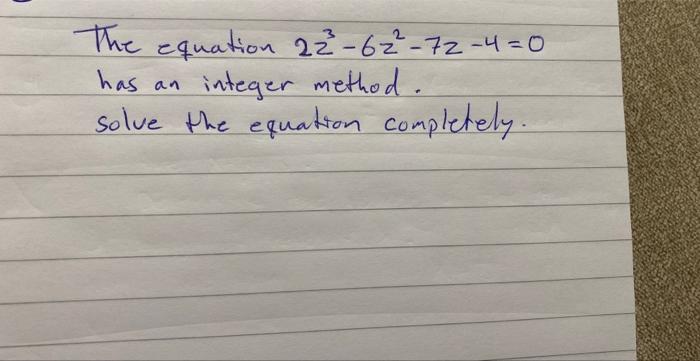 The equation 2z³-6z²-7z-4=0
has an integer method.
solve the equation completely.